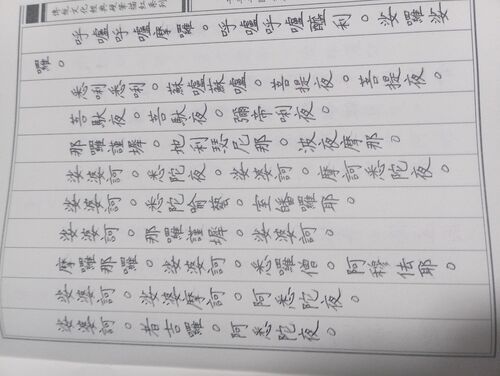 傳統文化經典硬筆描紅系列
呼嚧呼嚧摩囉。呼嚧呼嚧醯利。娑囉娑
囉。
悉唎悉唎。蘇嚧蘇嚧。菩提夜。菩提夜。
菩馱夜。菩馱夜。彌帝唎夜。
那囉謹墀。地利瑟尼那。波夜摩那。
娑婆訶。悉陀夜。娑婆訶。摩訶悉陀夜。
娑婆訶。悉陀喻藝。室皤囉耶。
娑婆訶。那囉謹墀。娑婆訶。
摩囉那囉。娑婆訶。悉囉僧。阿穆佉耶。
娑婆訶。娑婆摩訶。阿悉陀夜。
娑婆訶。者吉囉。阿悉陀夜。